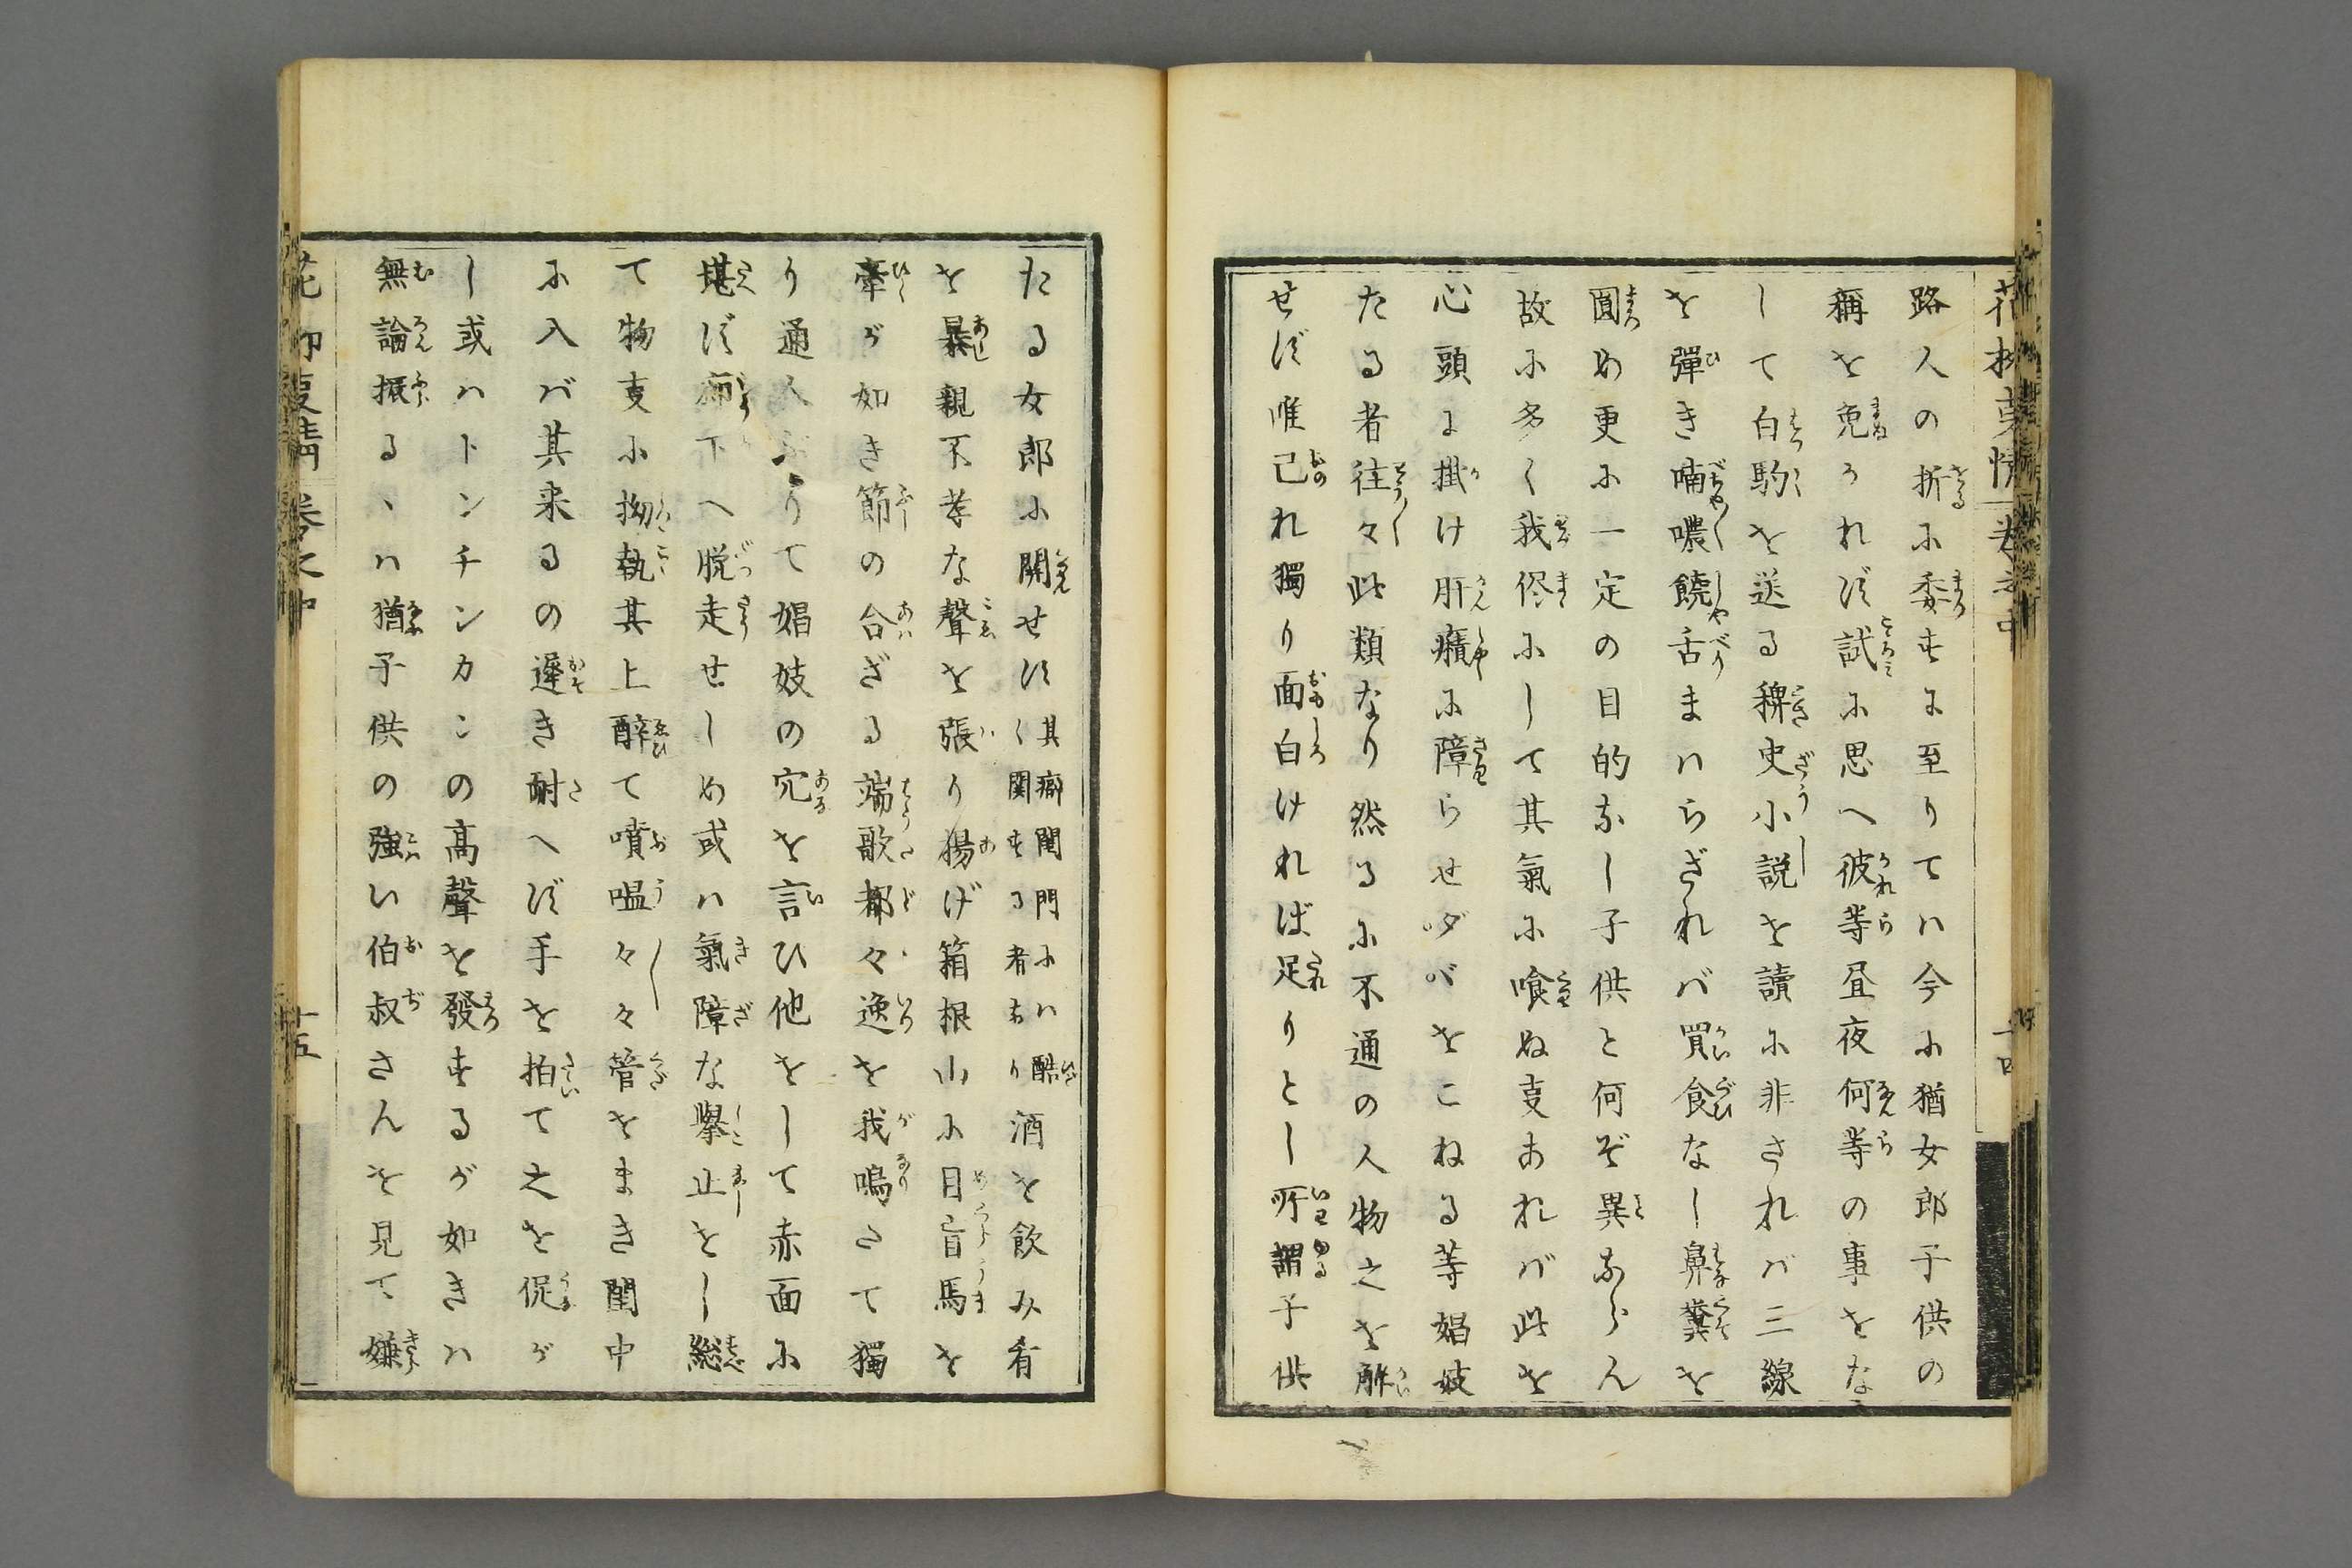 路人の折ふ委すに至りてハ今ふ猶女郎子供の
稱を免かれず試ふ思へ彼等昼夜何等の事をな
して白駒を送る稗史小説を讀ふ非されバ三線
を彈き喃噥饒舌まハらざれバ買食なし鼻糞を
圓め更ふ一定の目的なし子供と何ぞ異ならん
故ふ多く我侭ふして其氣ふ喰ぬ事あれバ此を
心頭に掛け肝癪ふ障らせダバをこねる等娼妓
たる者往々此類なり然るふ不通の人物之を解
せず唯己れ獨り面白けれは足りとし所謂子供
たる女郎ふ関せず其癖閨門ふハ酷く関する者あり酒を飲み肴
を暴親不孝な聲を張り揚げ箱根山ふ目盲馬を
牽が如き節の合ざる端歌都々逸を我鳴たて獨
り通人ぶりて娼妓の穴を言ひ他をして赤面ふ
堪ず廊下へ脱走せしめ或ハ氣障な擧止をし総
て物事ふ拗執其上醉て噴嗢々々管をまき閨中
ふ入バ其来るの遅き耐へず手を拍て之を促が
し或ハトンチンカンの高聲を發するが如きハ
無論振るゝハ猶子供の強い伯叔さんを見て嫌
花柳事情 卷之中
十五